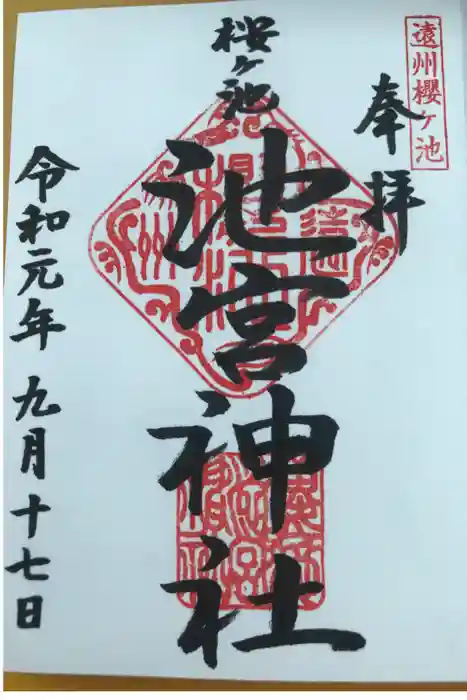 遠州櫻ヶ池
奉拝
櫻ヶ池
池宮神社
令和元年 九月十七日